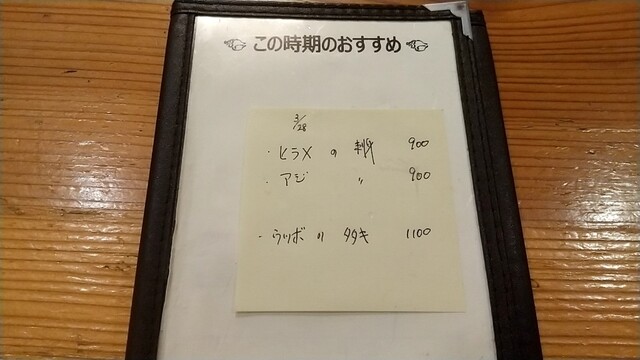 ☜ この時期のおすすめ ☜
3/28
・ヒラメ の 刺身 900
・アジ 〃 900
・ウツボ の タタキ 1100